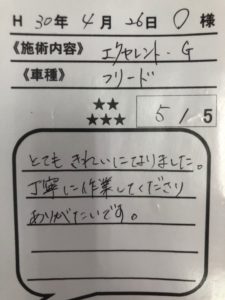 H 30年 4月 26日 O 様
《施術内容》エクセレント・G
《車種》フリード
★★
★★★
5/5
とてもきれいになりました。
丁寧に作業してくださり
ありがたいです。